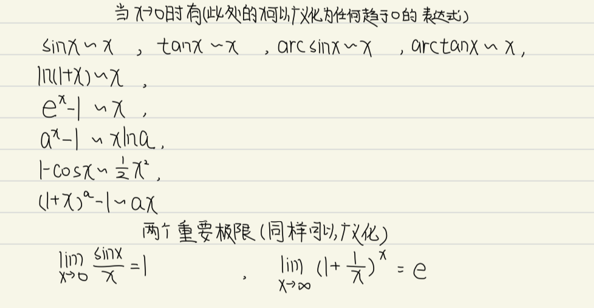 当x→0时有(此处的x可以广义化为任何趋于0的表达式)
sinx~x , tanx~x , arcsinx~x , arctanx~x ,
ln(1+x)~x ,
e^x-1~x ,
a^x-1~xlna ,
1-cosx~½x² ,
(1+x)^a-1~ax
两个重要极限(同样可以广义化)
lim x→0 sinx/x = 1 , lim x→∞ (1+1/x)^x = e